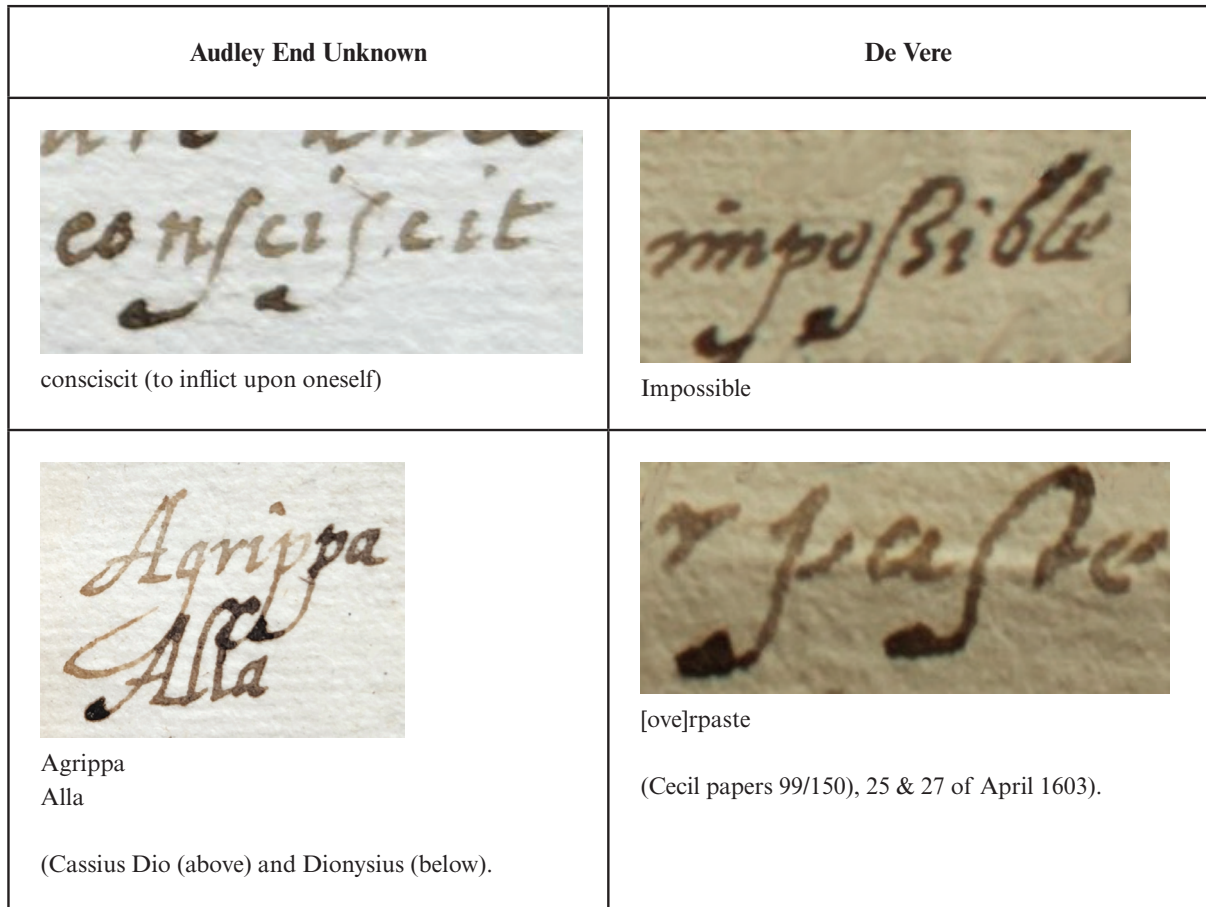 Audley End Unknown
De Vere
consciscit
consciscit (to inflict upon oneself)
impossible
Impossible
Agrippa
Alla
Agrippa
Alla
(Cassius Dio (above) and Dionysius (below).
rpaste
[ove]rpaste
(Cecil papers 99/150), 25 & 27 of April 1603).